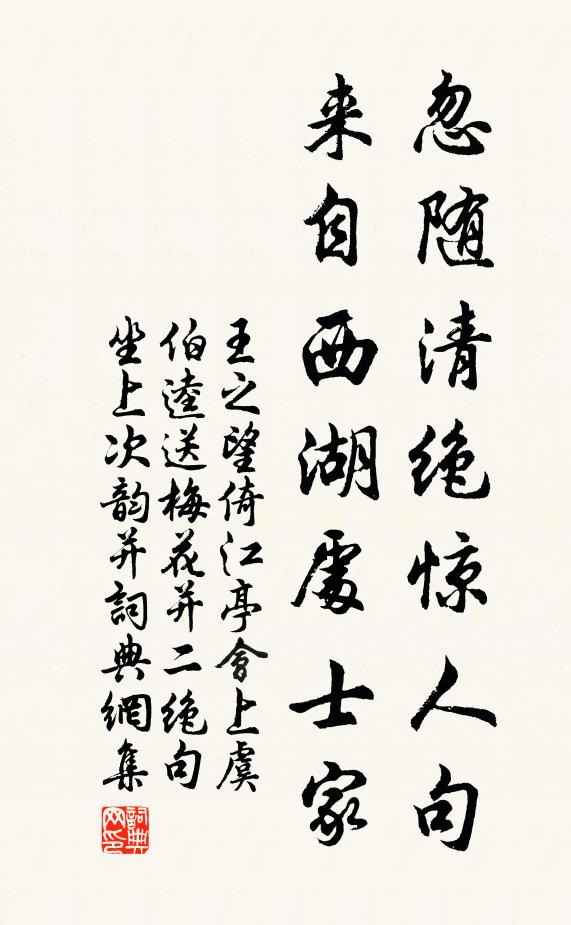 忽随清绝惊人句
来自西湖處士家
王之望倚江亭會上虞
伯逵送梅花并二绝句
坐上次韵并詞典網集
詞典网印